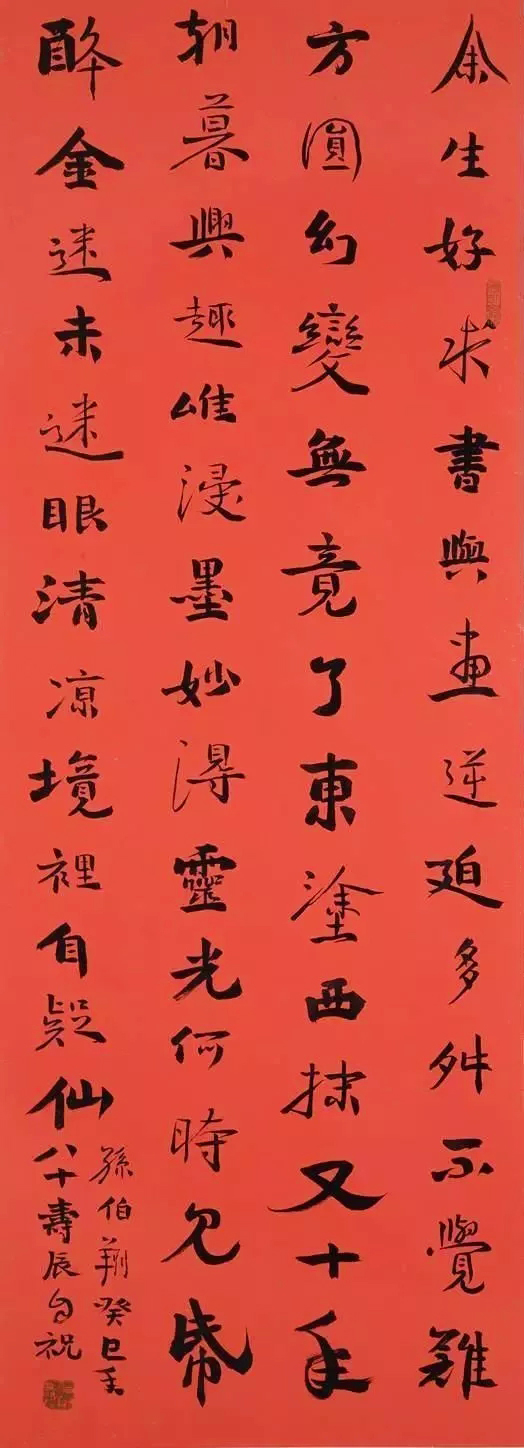 余生好求書與畫逆廹多舛不覺難
方圓幻變無竟了東塗西抹又十年
朝暮興趣唯浸墨妙得靈光何時見帋
醉金迷未迷眼清凉境裡自疑仙
孫伯翔癸巳年
八十壽辰自祝